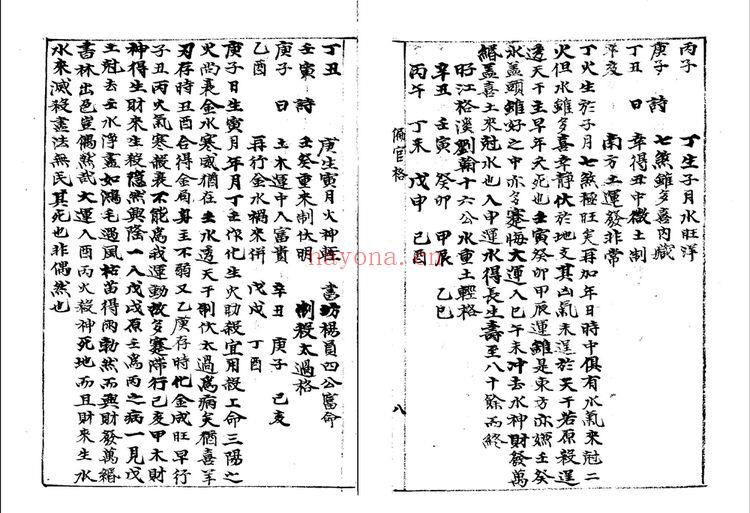 丙子　丁生子月水旺洋
庚子　詩　七煞雖多喜內藏
丁丑　日　幸得丑中微土制
辛亥　南方土運發非常
丁火生於子月七煞極旺矣再加年日時中俱有水氣來冠二
火但水雖多喜幸靜伏於地支其凶氣未逞於天干若原殺逞
透天干主早年夭死也壬寅癸卯甲辰運雖是東方亦嫌壬癸
水蓋頭雖好之中亦多蹇悔大運入巳午未冲去水神財發萬
緡蓋喜土來尅水也入甲運水得長生壽至八十餘而終
旴江格溪劉翰十六公水重土輕格
辛丑　壬寅　癸卯　甲辰　乙巳
丙午　丁未　戊申　己酉
偏官格　八
丁丑　庚生寅月火神旺　書坊楊員四公富命
壬寅　詩　壬癸重來制伏明　制殺太過格
庚子　日　土木運中入富貴　辛丑　庚子　己亥
乙酉　再行金水禍來拼　戊戌　丁酉
庚子日生寅月年月丁壬作化生火助殺宜用殺工命三陽之
火尚衰金水寒或猶在壬水透天干制伏太過為病矣猶喜羊
刃存時丑酉合得金局身主不弱又乙庚存時化金成旺早行
子丑丙火氣寒微衰不能為我運動故多蹇滯行己亥甲木財
神得生財來生殺隱然興隆一入戊戌原壬為丙之病一見戊
土尅去壬水淨盡如鴻毛遇風枯苗得雨勃然而興財發萬緡
書林出色豈偶然哉大運入酉丙火殺神死地而且財來生水
水來滅殺盡法無民其死也非偶然也
hayona.cn